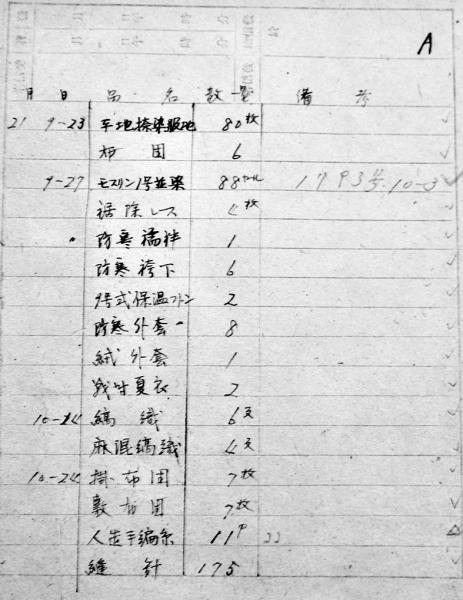 A
月 日 品名 数量 備考
21 9-23 平地捺染服地 80枚
布団 6
9-27 モスリン1号並染 88ヤール
裾除レース 4枚
防寒襦袢 1
防寒袴下 6
号式保温フトン 2
防寒外套 8
絨外套 1
夏衣 2
10-14 縞織 6反
麻混縞織 4反
10-24 掛布団 7枚
敷布団 7枚
人造手編糸 11P 22
縫針 175